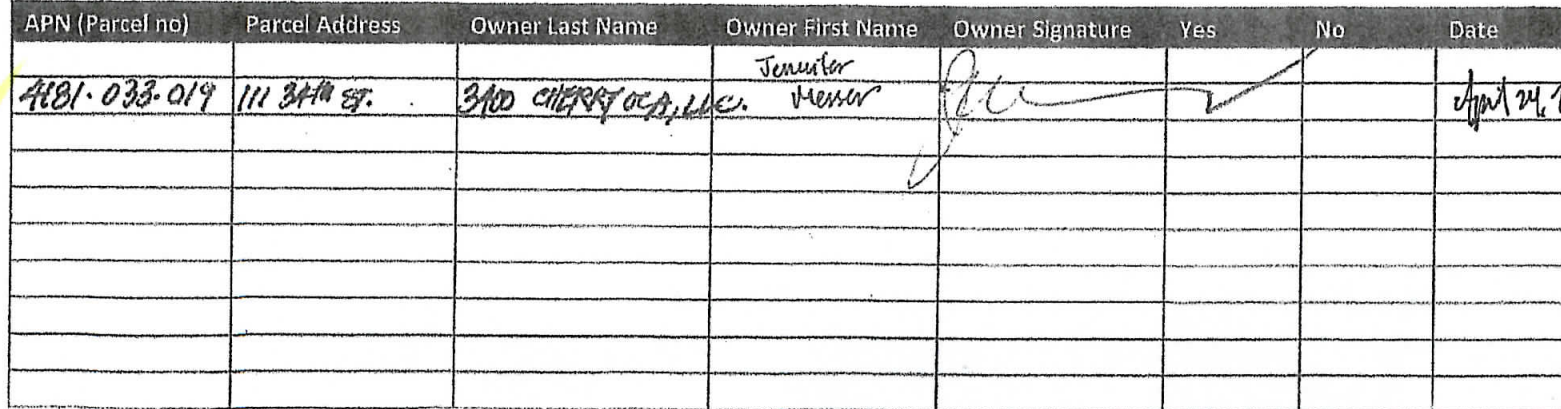 APN (Parcel no) Parcel Address Owner Last Name Owner First Name Owner Signature Yes No Date
Jennifer
4181-033-019 111 34th ST. 3400 CHERRY OCA, LLC. Messer April 24,